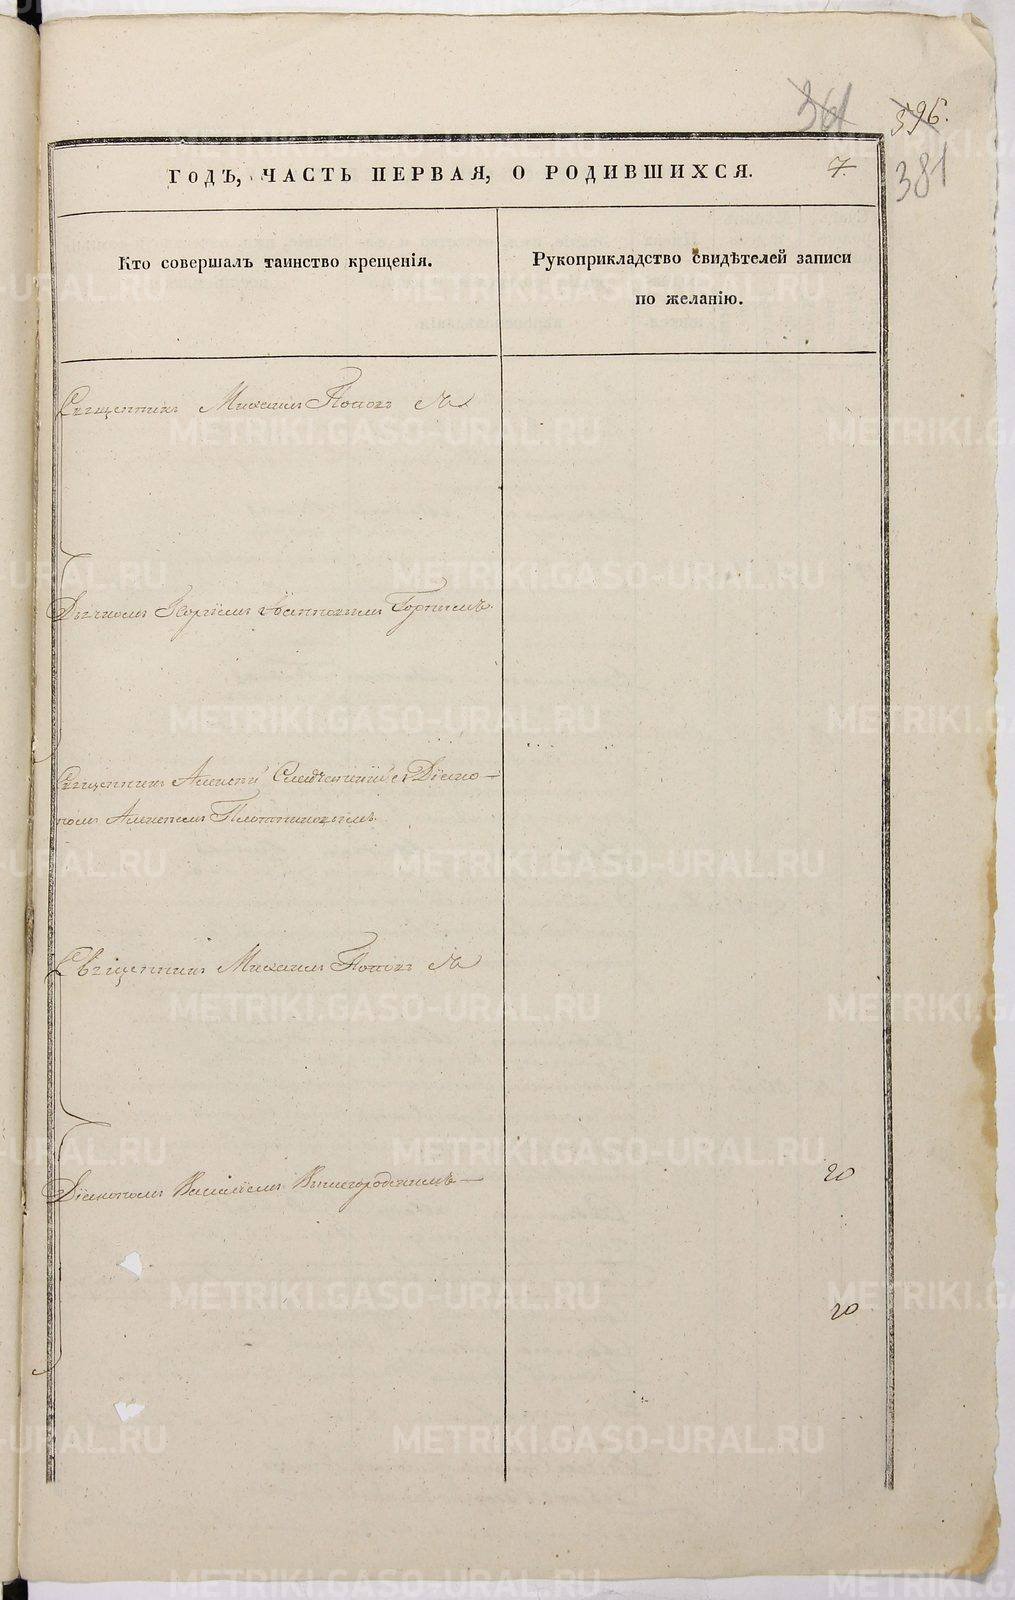 361
396.
381
ГОДЪ, ЧАСТЬ ПЕРВАЯ, О РОДИВШИХСЯ. 7.
Кто совершалъ таинство крещенія.
Рукоприкладство свидѣтелей записи
по желанію.
Священникъ Михаилъ Поповъ съ
Дьячкомъ Іоанновымъ
Священникъ Алексѣй съ Діако-
номъ Алексѣемъ Плотниковымъ.
Священникъ Михаилъ Поповъ съ
Діакономъ Василіемъ Вышегородскимъ
20
20
METRIKI.GASO-URAL.RU